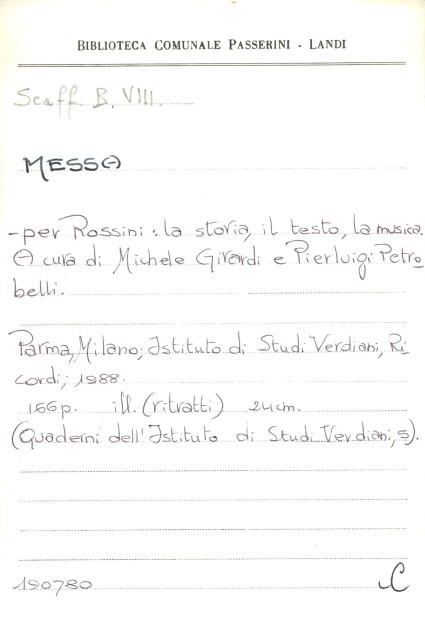 BIBLIOTECA COMUNALE PASSERINI - LANDI
Scaff. B. VIII.
MESSA
- per Rossini : la storia, il testo, la musica.
A cura di Michele Girardi e Pierluigi Petro
belli.
Parma, Milano; Istituto di Studi Verdiani, Ri
cordi; 1988.
166 p. ill. (ritratti) 24 cm.
(Quaderni dell'Istituto di Studi Verdiani, 5).
190780 C